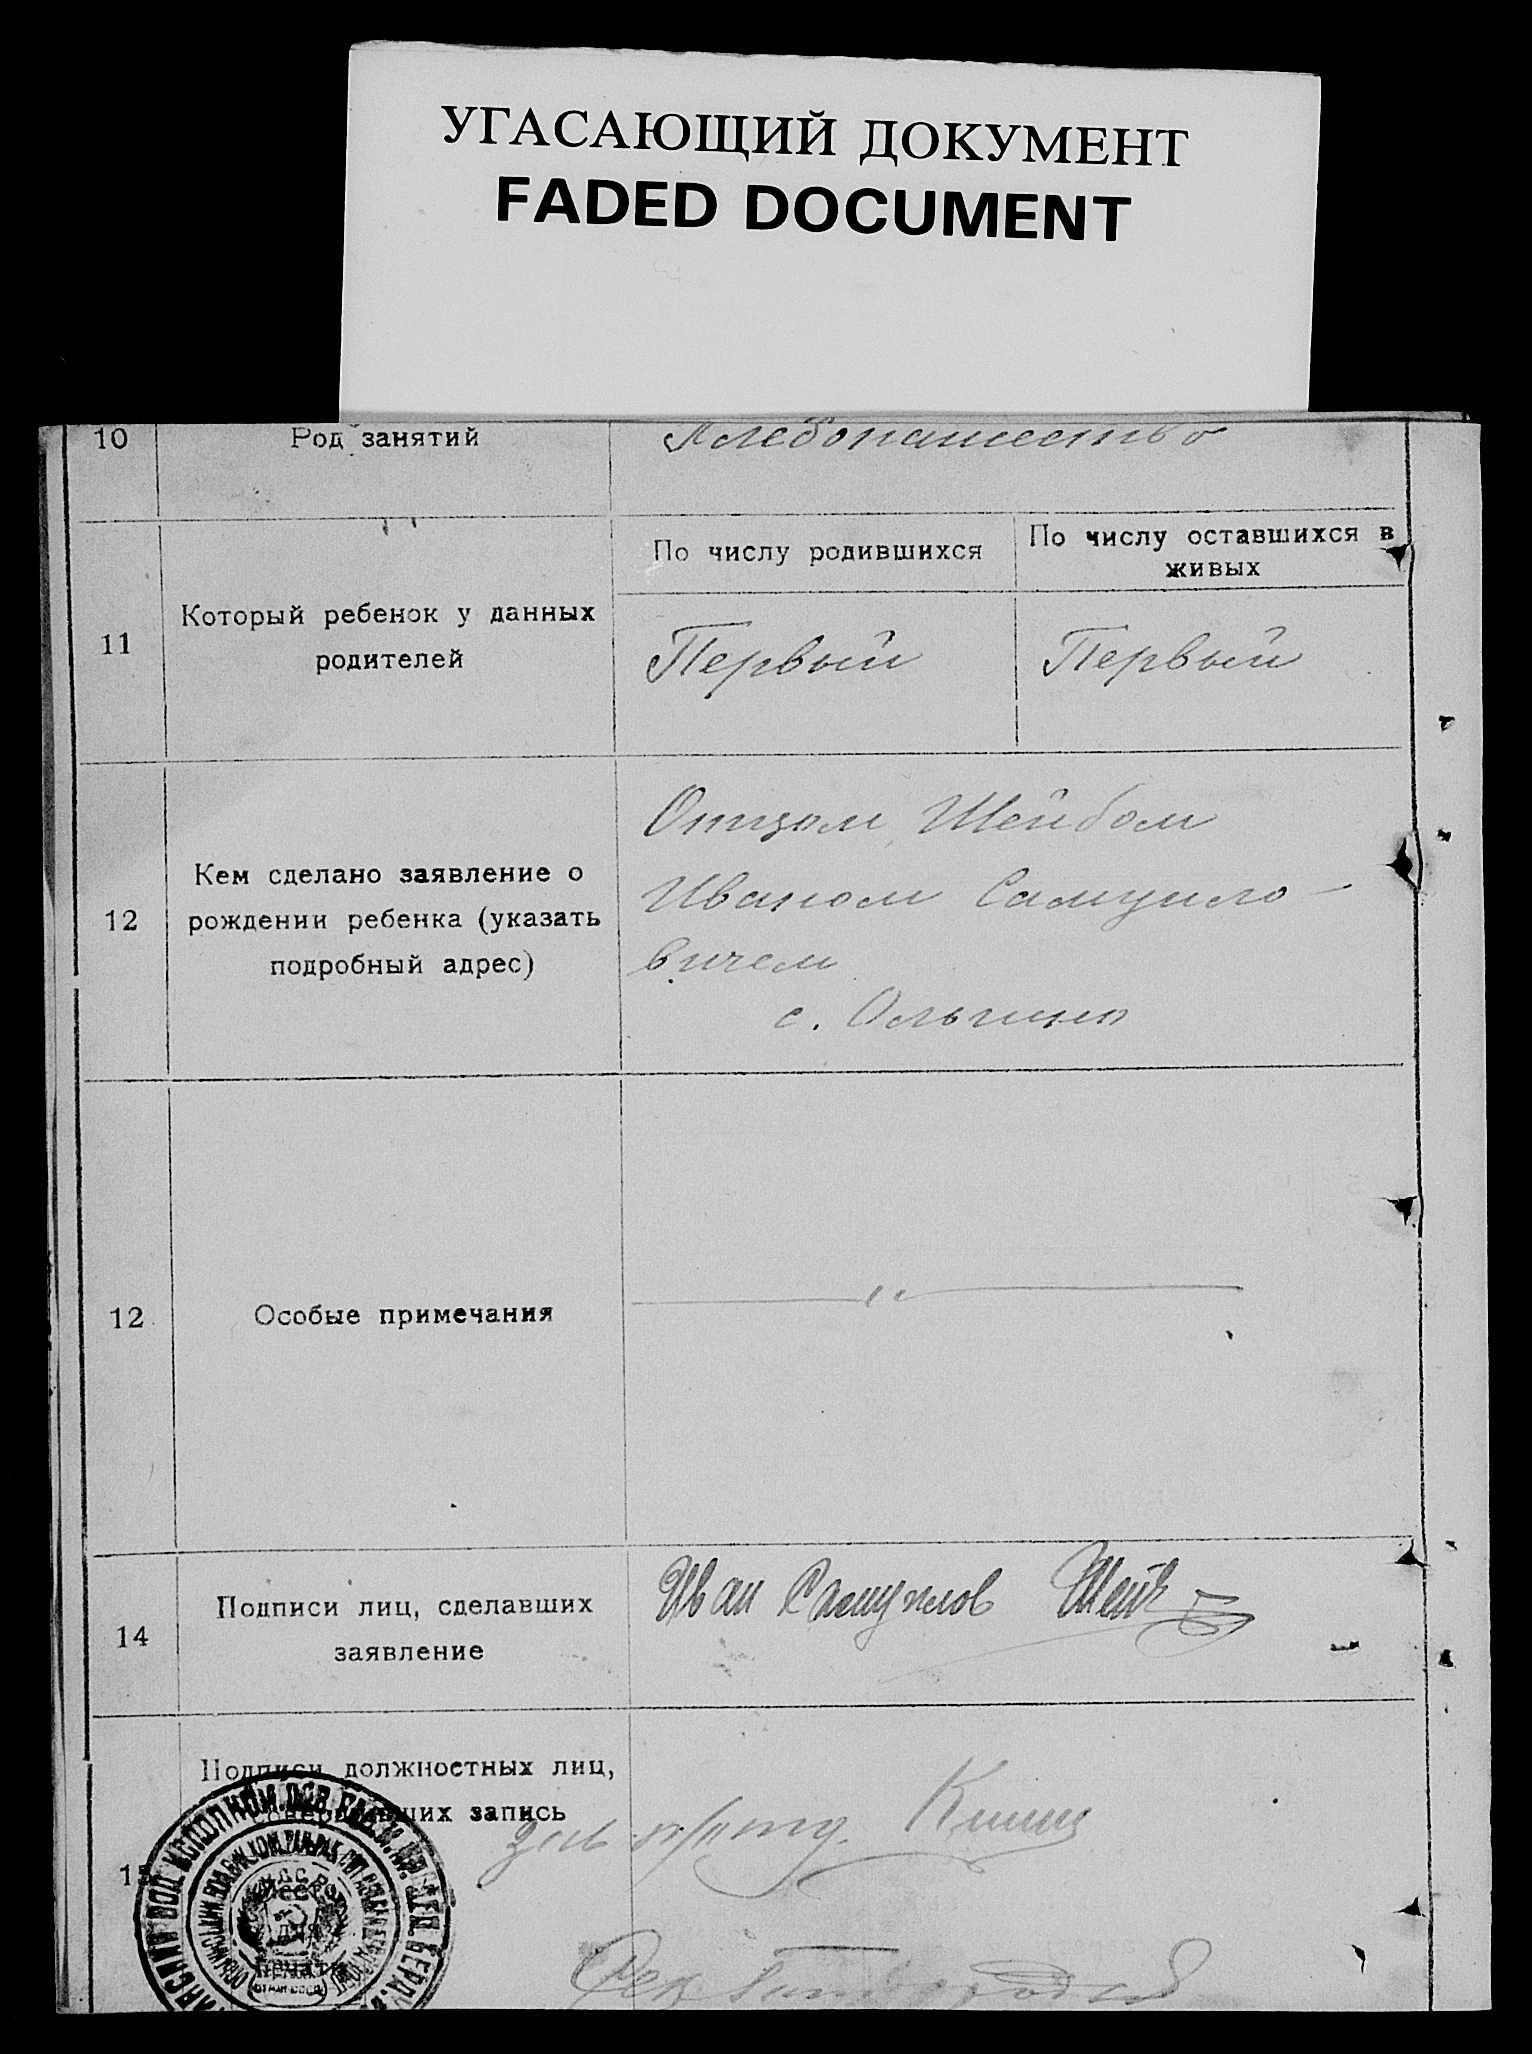 УГАСАЮЩИЙ ДОКУМЕНТ
FADED DOCUMENT
10 Род занятий Хлебопашество
11 Который ребенок у данных родителей
По числу родившихся
По числу оставшихся в живых
Первый Первый
12 Кем сделано заявление о
рождении ребенка (указать
подробный адрес)
Отцом, Шейбом
Иваном Самуило-
вичем
с. Ольгино
12 Особые примечания
14 Подписи лиц, сделавших
заявление
Иван Самуилов Шейб
15 Подписи должностных лиц,
совершивших запись
печати